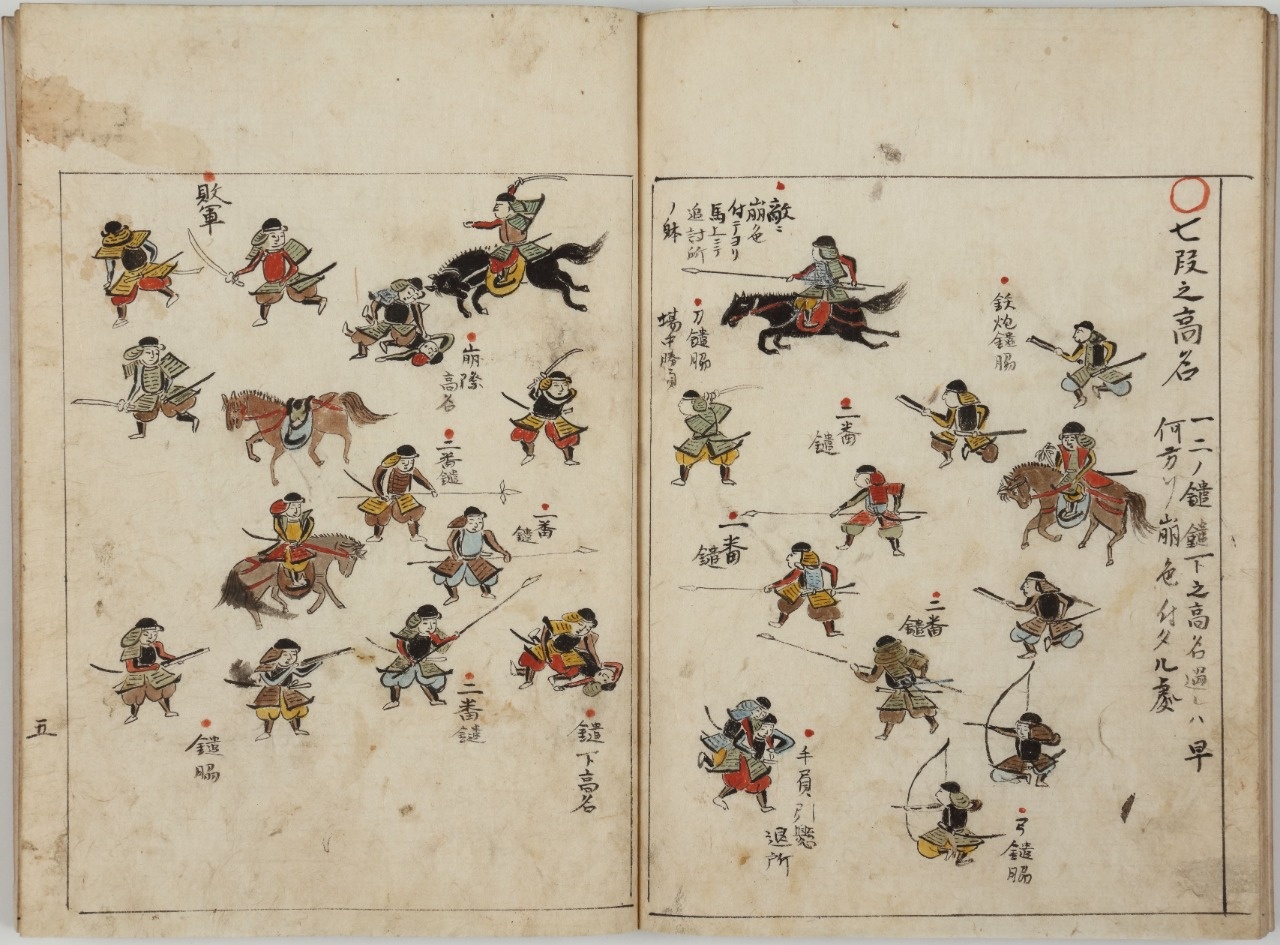 七段之高名
一二ノ鑓鑓下之高名過レハ早
何方ソ崩色付タル處
鉄炮鑓脇
二番
鑓
一番
鑓
二番
鑓
弓鑓脇
手負引懸
退所
敵ニ
崩色
付テヨリ
馬上ニテ
追討所
ノ躰
刀鑓脇
場中勝負
崩際
高名
敗軍
二番鑓
一番
鑓
二番鑓
鑓下高名
鑓脇
五